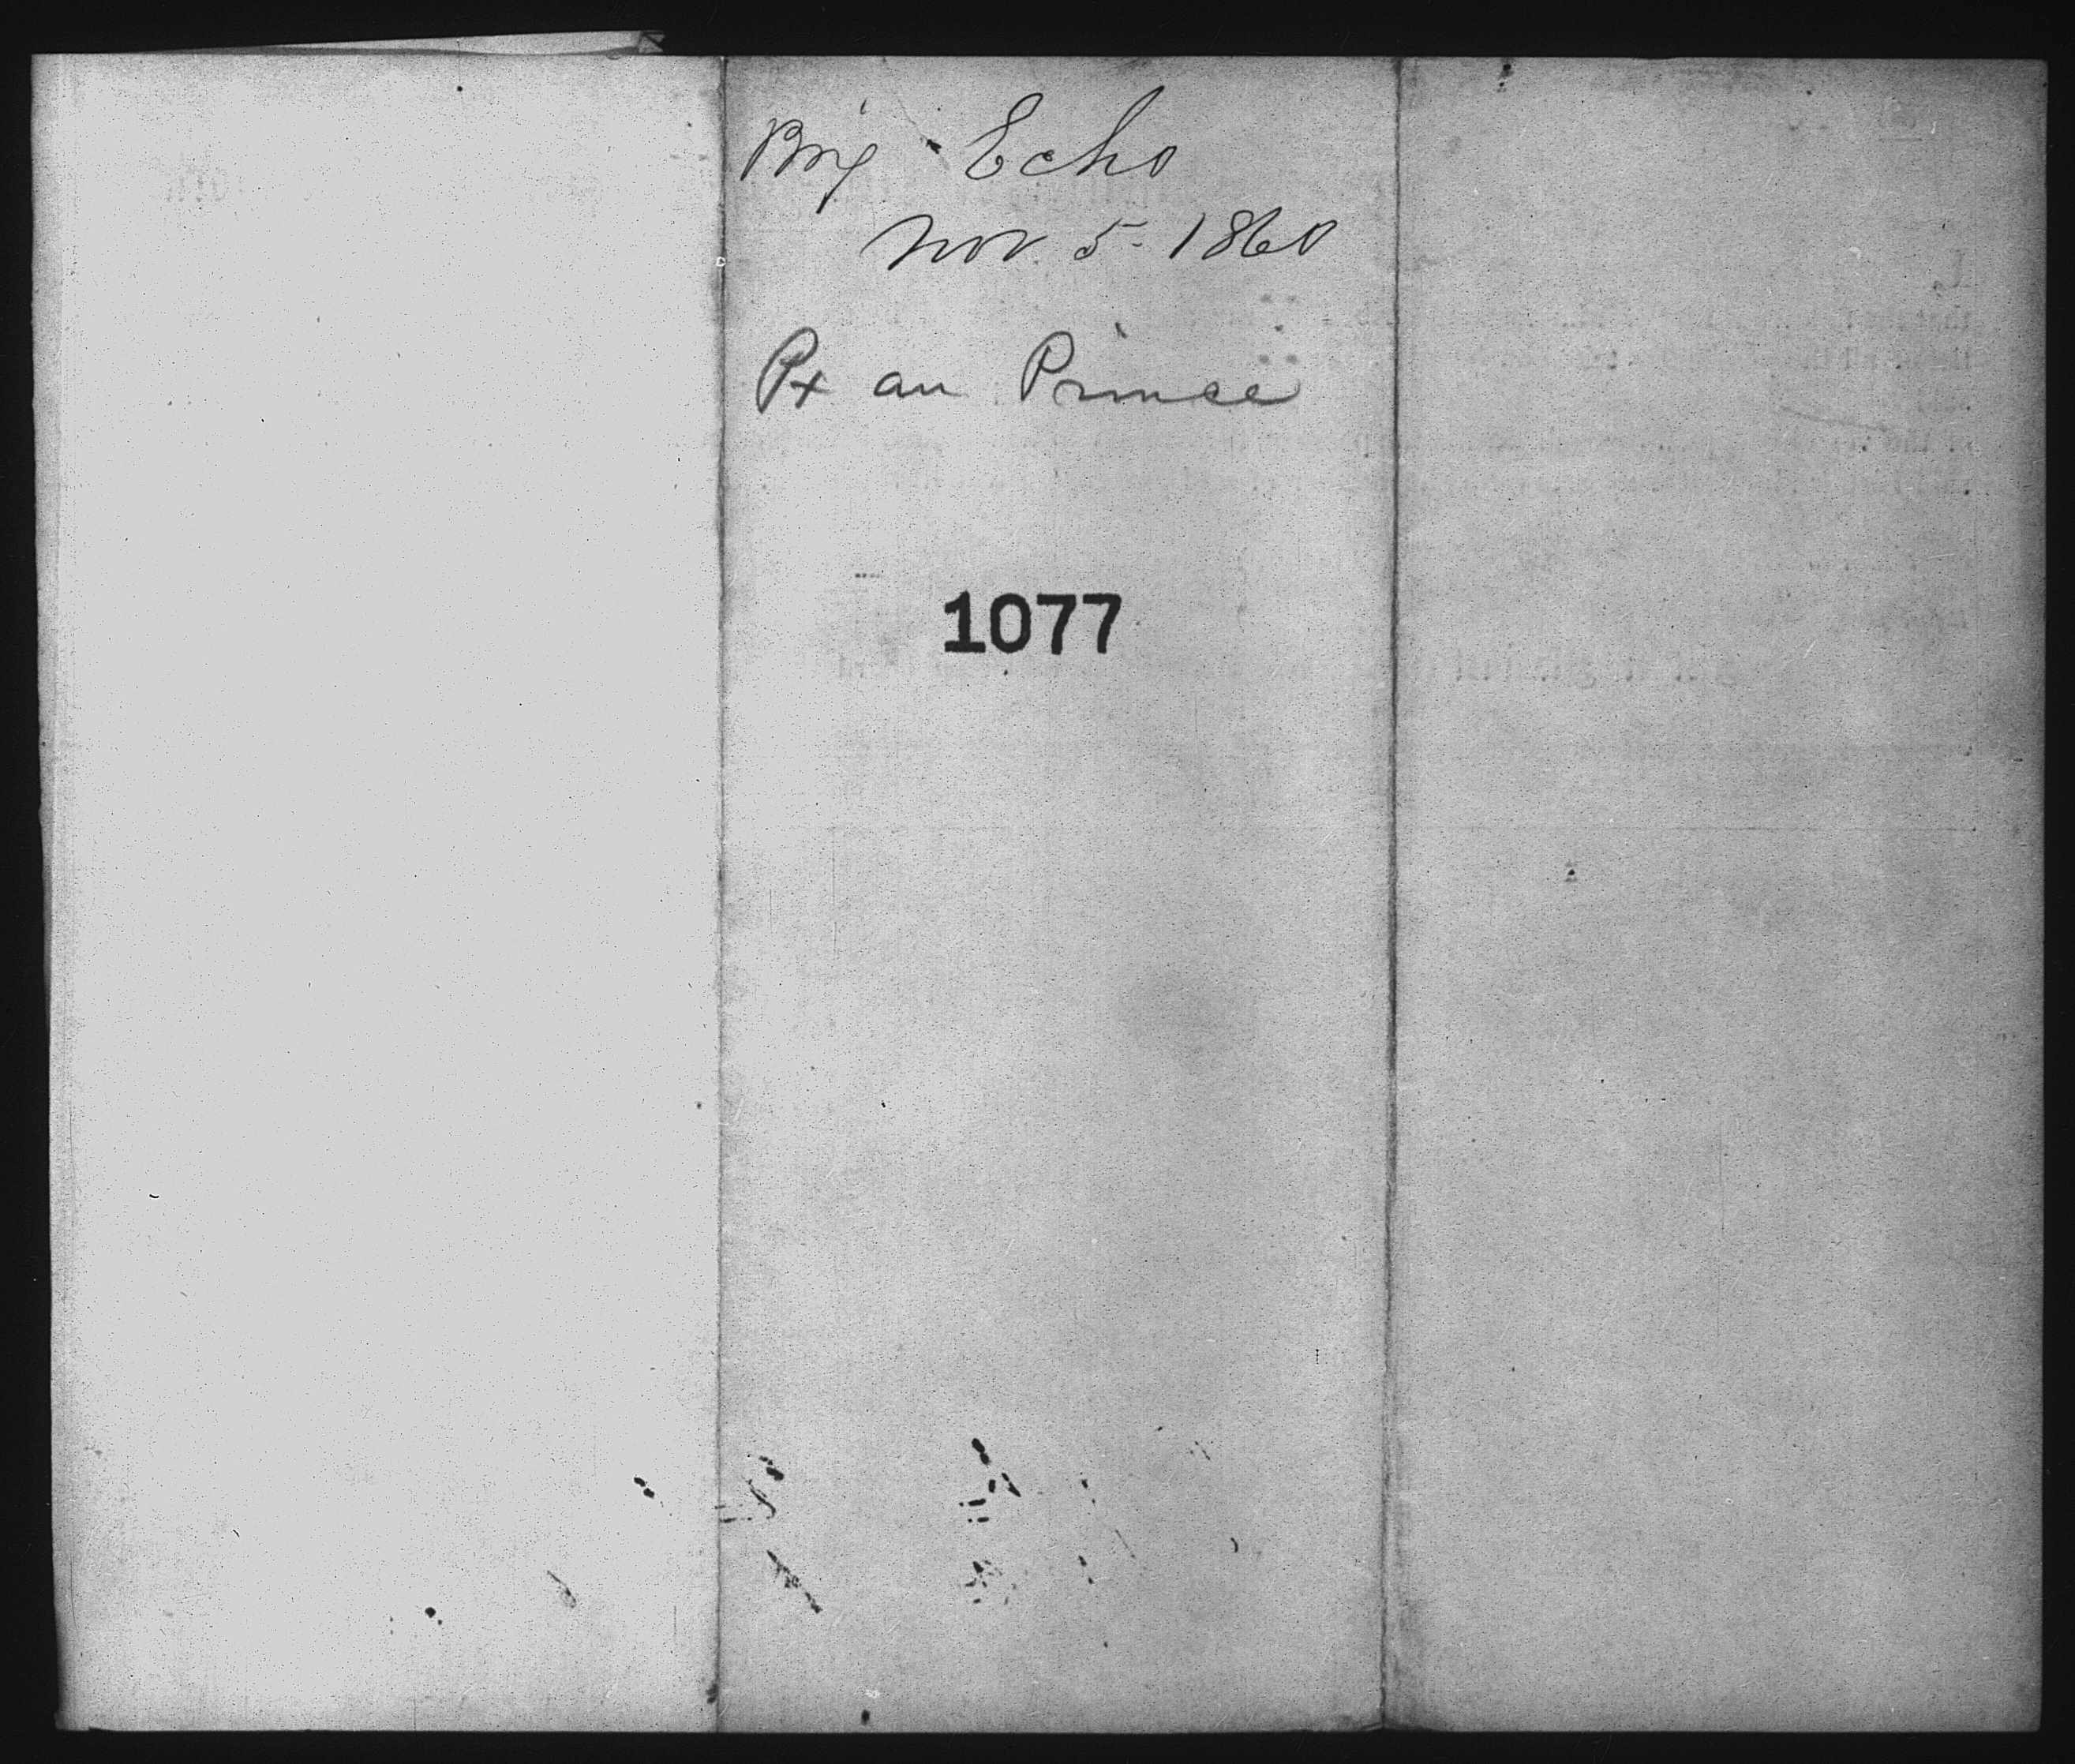 Brig Echo
Nov. 5- 1860
Pt au Prince
1077